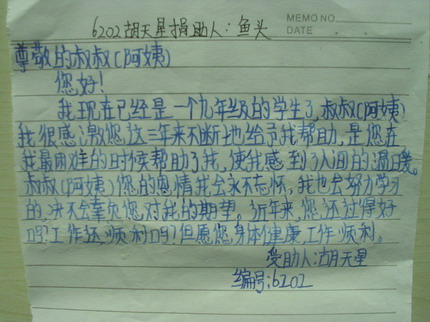 6202胡天星捐助人：鱼头
MEMO NO.
DATE
尊敬的叔叔(阿姨)
您好！
我现在已经是一个九年级的学生了，叔叔(阿姨)
我很感激您这三年来不断地给予我帮助，是您在
我最困难的时候帮助了我，使我感到了人间的温暖。
叔叔(阿姨)您的恩情我会永不忘怀，我也会努力学习
的，决不会辜负您对我的期望。近年来，您还过得好
吗？工作还顺利吗？但愿您身体健康，工作顺利。
受助人：胡天星
编号：6202